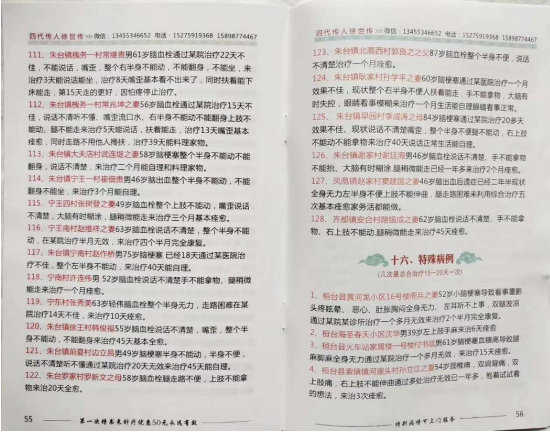 四代传人徐世传>>>微信：13455346652 电话：15275919368 15898774467
111、朱台镇槐务一村常继贵男61岁脑血栓通过某院治疗22天不
佳，不能说话，嘴歪，整个右半身不能动，不能翻身，不能坐，来
治疗3天能说话能坐，治疗8天嘴歪基本看不出来了，同时扶着能下
床能走，第15天走的更好，因怕疼停止治疗。
112、朱台镇槐务一村常兆坤之妻56岁脑血栓通过某院治疗15天不
佳，说话不清听不懂，嘴歪流口水，右半身不能动不能翻身上肢不
能动、腿不能走来治疗5天能说话，扶着能走，治疗13天嘴歪基本
痊愈，同时走路不用他人搀扶，治疗39天能料理家物。
113、朱台镇大夫店村武连堤之妻58岁脑梗塞整个半身不能动不能
翻身，说话不清楚，来治疗二个月能自理和料理家物。
114、朱台镇宁王一村崔佃贵男46岁脑出血整个半身不能动，不能
翻身不能坐，来治疗3个月能自理。
115、宁王四村张树登之妻49岁脑血栓整个上肢不能动，嘴歪说话
不清楚，大脑有时糊涂，腿稍微能走来治疗三个月基本痊愈。
116、宁王南村赵维祥之妻63岁脑血栓说话不清楚，整个半身不能
动，在某院治疗半月无效，来治疗四个半月完全康复。
117、朱台镇宁南村赵作桥男75岁脑梗塞 已经18天通过某医院治
疗不佳，整个左半身不能动，来治疗40天能自理。
118、宁南村许连伟男 52岁脑血栓说话不清楚手不能拿物、腿稍微
能走来治疗一个月痊愈。
119、宁东村张秀美63岁轻伟脑血栓整个半身无力，走路困难在某
院治疗14天不佳，来治疗10天痊愈。
120、朱台镇徐王村韩俊福55岁脑血栓说话不清楚，嘴歪，整个半
身不能动，不能翻身来治疗45天基本全愈。
121、朱台镇前夏村边立昌男49岁脑梗塞半身不能动，半身不便，
说话不清楚听不懂通过某院治疗20天无效来治疗45天能自理。
122、朱台罗家村罗新文之母58岁脑血栓腿走路不便，上肢不能拿
物来治20天全愈。
55
第一次持本来针疗优惠50元永远有效
四代传人徐世传>>>微信：13455346652 电话：15275919368 15898774467
123、朱台镇北高西村郭良之之父87岁脑血栓整个半身不便，说话
不清楚治疗一个月痊愈。
124、朱台镇耿家村孙学平之妻60岁脑梗塞通过某医院治疗一个月
效果不佳，现状整个右半身不便人扶着能走，手不能拿物，大脑有
时失控，眼睛看事模糊来治疗一个月生活能自理眼睛看事正常。
125、朱台镇早园村李成涛之母84岁脑血栓通过某院治疗20多天
效果不佳、现状说话不清楚嘴歪，整个半身不便腿能动，右上肢
不能动不能拿物来治疗40天说话正常生活能自理。
126、朱台镇谢家村谢廷海男46岁脑血栓说话不清楚、手不能拿物
不能抬、大脑有时糊涂，腿稍微能走已经一年多来治疗2个月痊愈。
127、凤凰镇赵家村窦建国之妻46岁脑出血后遗症已经二年半现状
全身无力左半身不便上肢不能伸曲，腿走路困难来利用综合治疗五
次基本痊愈家务活都能做。
128、齐都镇安合村路振成之妻62岁脑血栓说话不清楚、手不能拿
物、大脑糊涂，半身无力来治疗一个月痊愈。
十六、特殊病例
(几次是总合治疗15—20天一次)
1、桓台县黄河龙小区16号楼周兵之妻52岁小脑梗导致看事重影
头疼眩晕、 恶心、肚胀胸闷全身无力、 左耳听不上事，双腿发凉
通过某某诊所治疗一个多月无效来治疗2个半月完全康复。
2、桓台海圣春天小区沈华男39岁左上肢手麻来治疗6天痊愈
3、桓台县火车站家属楼一号楼付书庭男61岁脑梗塞血糖高导致腿
麻脚麻全身无力通过某院治疗一个多月无效，来治疗15天痊愈。
4、桓台县索镇镇河崖头村孙立江之妻56岁上肢稍痛，双肩疼痛，右
上肢痛，右上肢不能伸曲通过多处治疗无效已一年多，抱着试试看
的想法，来治疗3次痊愈。
56
特别病情可上门服务